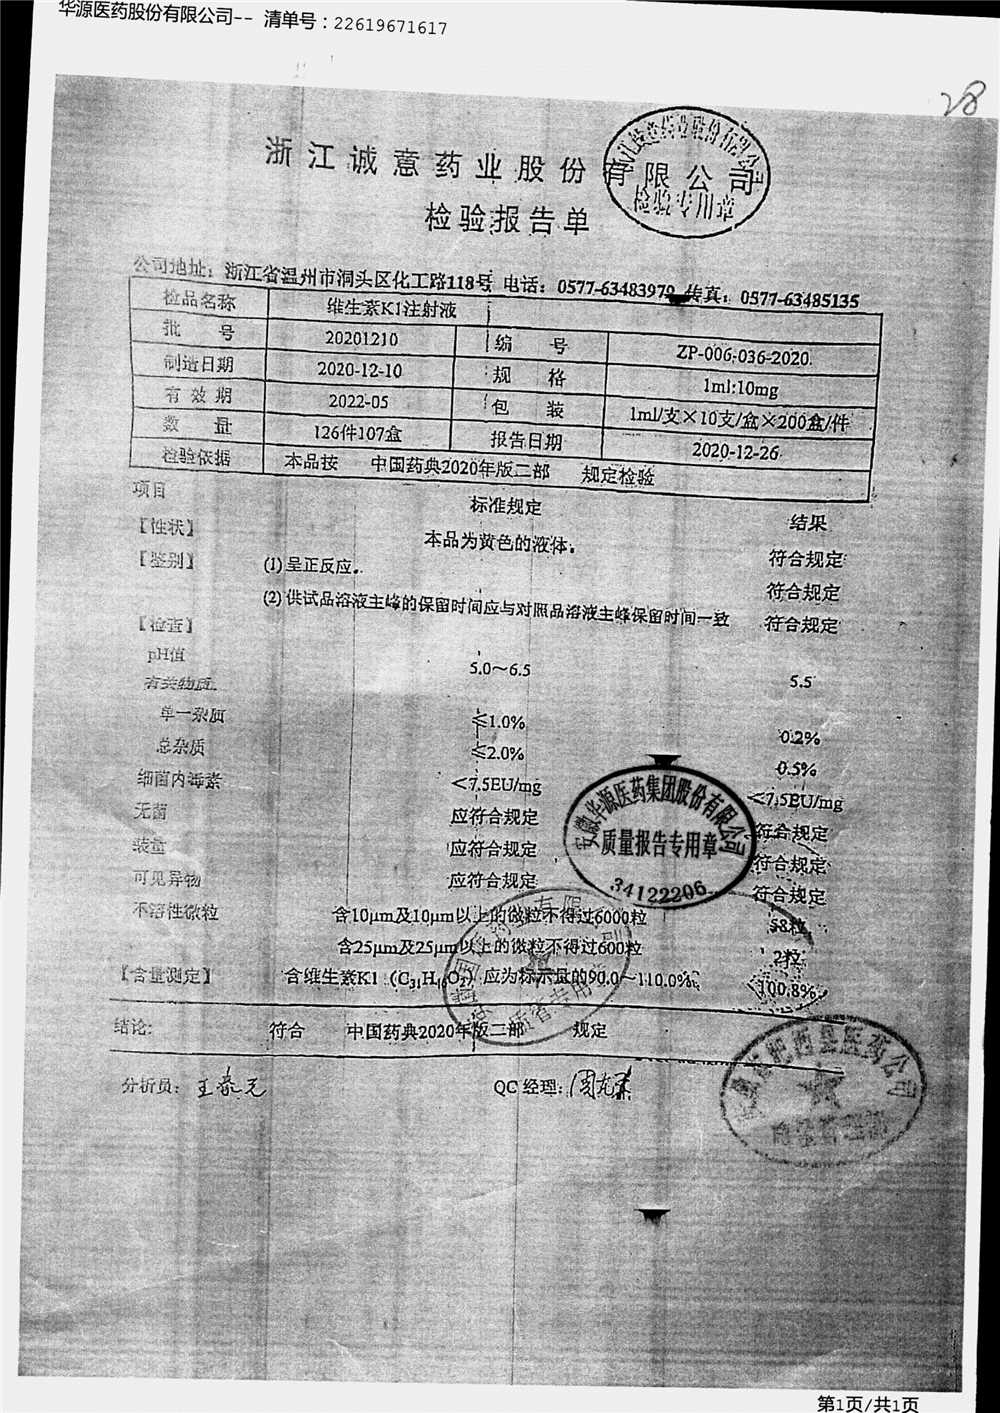 华源医药股份有限公司-- 清单号：22619671617
28
浙江诚意药业股份有限公司
检验专用章
检验报告单
公司地址：浙江省温州市洞头区化工路118号 电话：0577-63483979 传真：0577-63485135
检品名称 维生素K1注射液
批 号 20201210 编 号 ZP-006-036-2020
制造日期 2020-12-10 规 格 1ml:10mg
有 效 期 2022-05 包 装 1ml/支×10支/盒×200盒/件
数 量 126件107盒 报告日期 2020-12-26
检验依据 本品按 中国药典2020年版二部 规定检验
项目 标准规定 结果
【性状】 本品为黄色的液体。 符合规定
【鉴别】 (1)呈正反应。 符合规定
(2)供试品溶液主峰的保留时间应与对照品溶液主峰保留时间一致 符合规定
【检查】
pH值 5.0～6.5 5.5
有关物质
单一杂质 ≤1.0% 0.2%
总杂质 ≤2.0% 0.5%
细菌内毒素 <7.5EU/mg <7.5EU/mg
无菌 应符合规定 符合规定
装量 应符合规定 符合规定
可见异物 应符合规定 符合规定
不溶性微粒 含10μm及10μm以上的微粒不得过6000粒 58粒
含25μm及25μm以上的微粒不得过600粒 2粒
【含量测定】 含维生素K1（C31H46O2）应为标示量的90.0～110.0% 100.8%
安徽华源医药集团股份有限公司
质量报告专用章
34122206
结论: 符合 中国药典2020年版二部 规定
分析员: QC经理:
安徽省肥西县医药公司
第1页/共1页